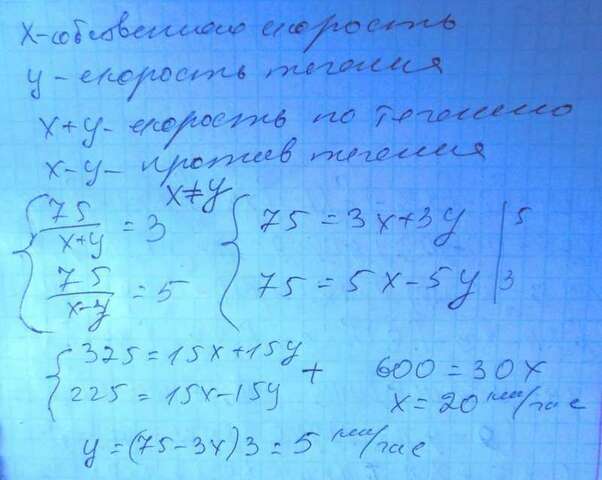 x - собственная скорость
y - скорость течения
x+y - скорость по течению
x-y - против течения
x≠y
{ 75/(x+y) = 3 { 75 = 3x+3y | 5
75/(x-y) = 5 75 = 5x-5y | 3
{ 325 = 15x+15y + 600 = 30x
225 = 15x-15y x = 20 км/час
y = (75-3x)3 = 5 км/час